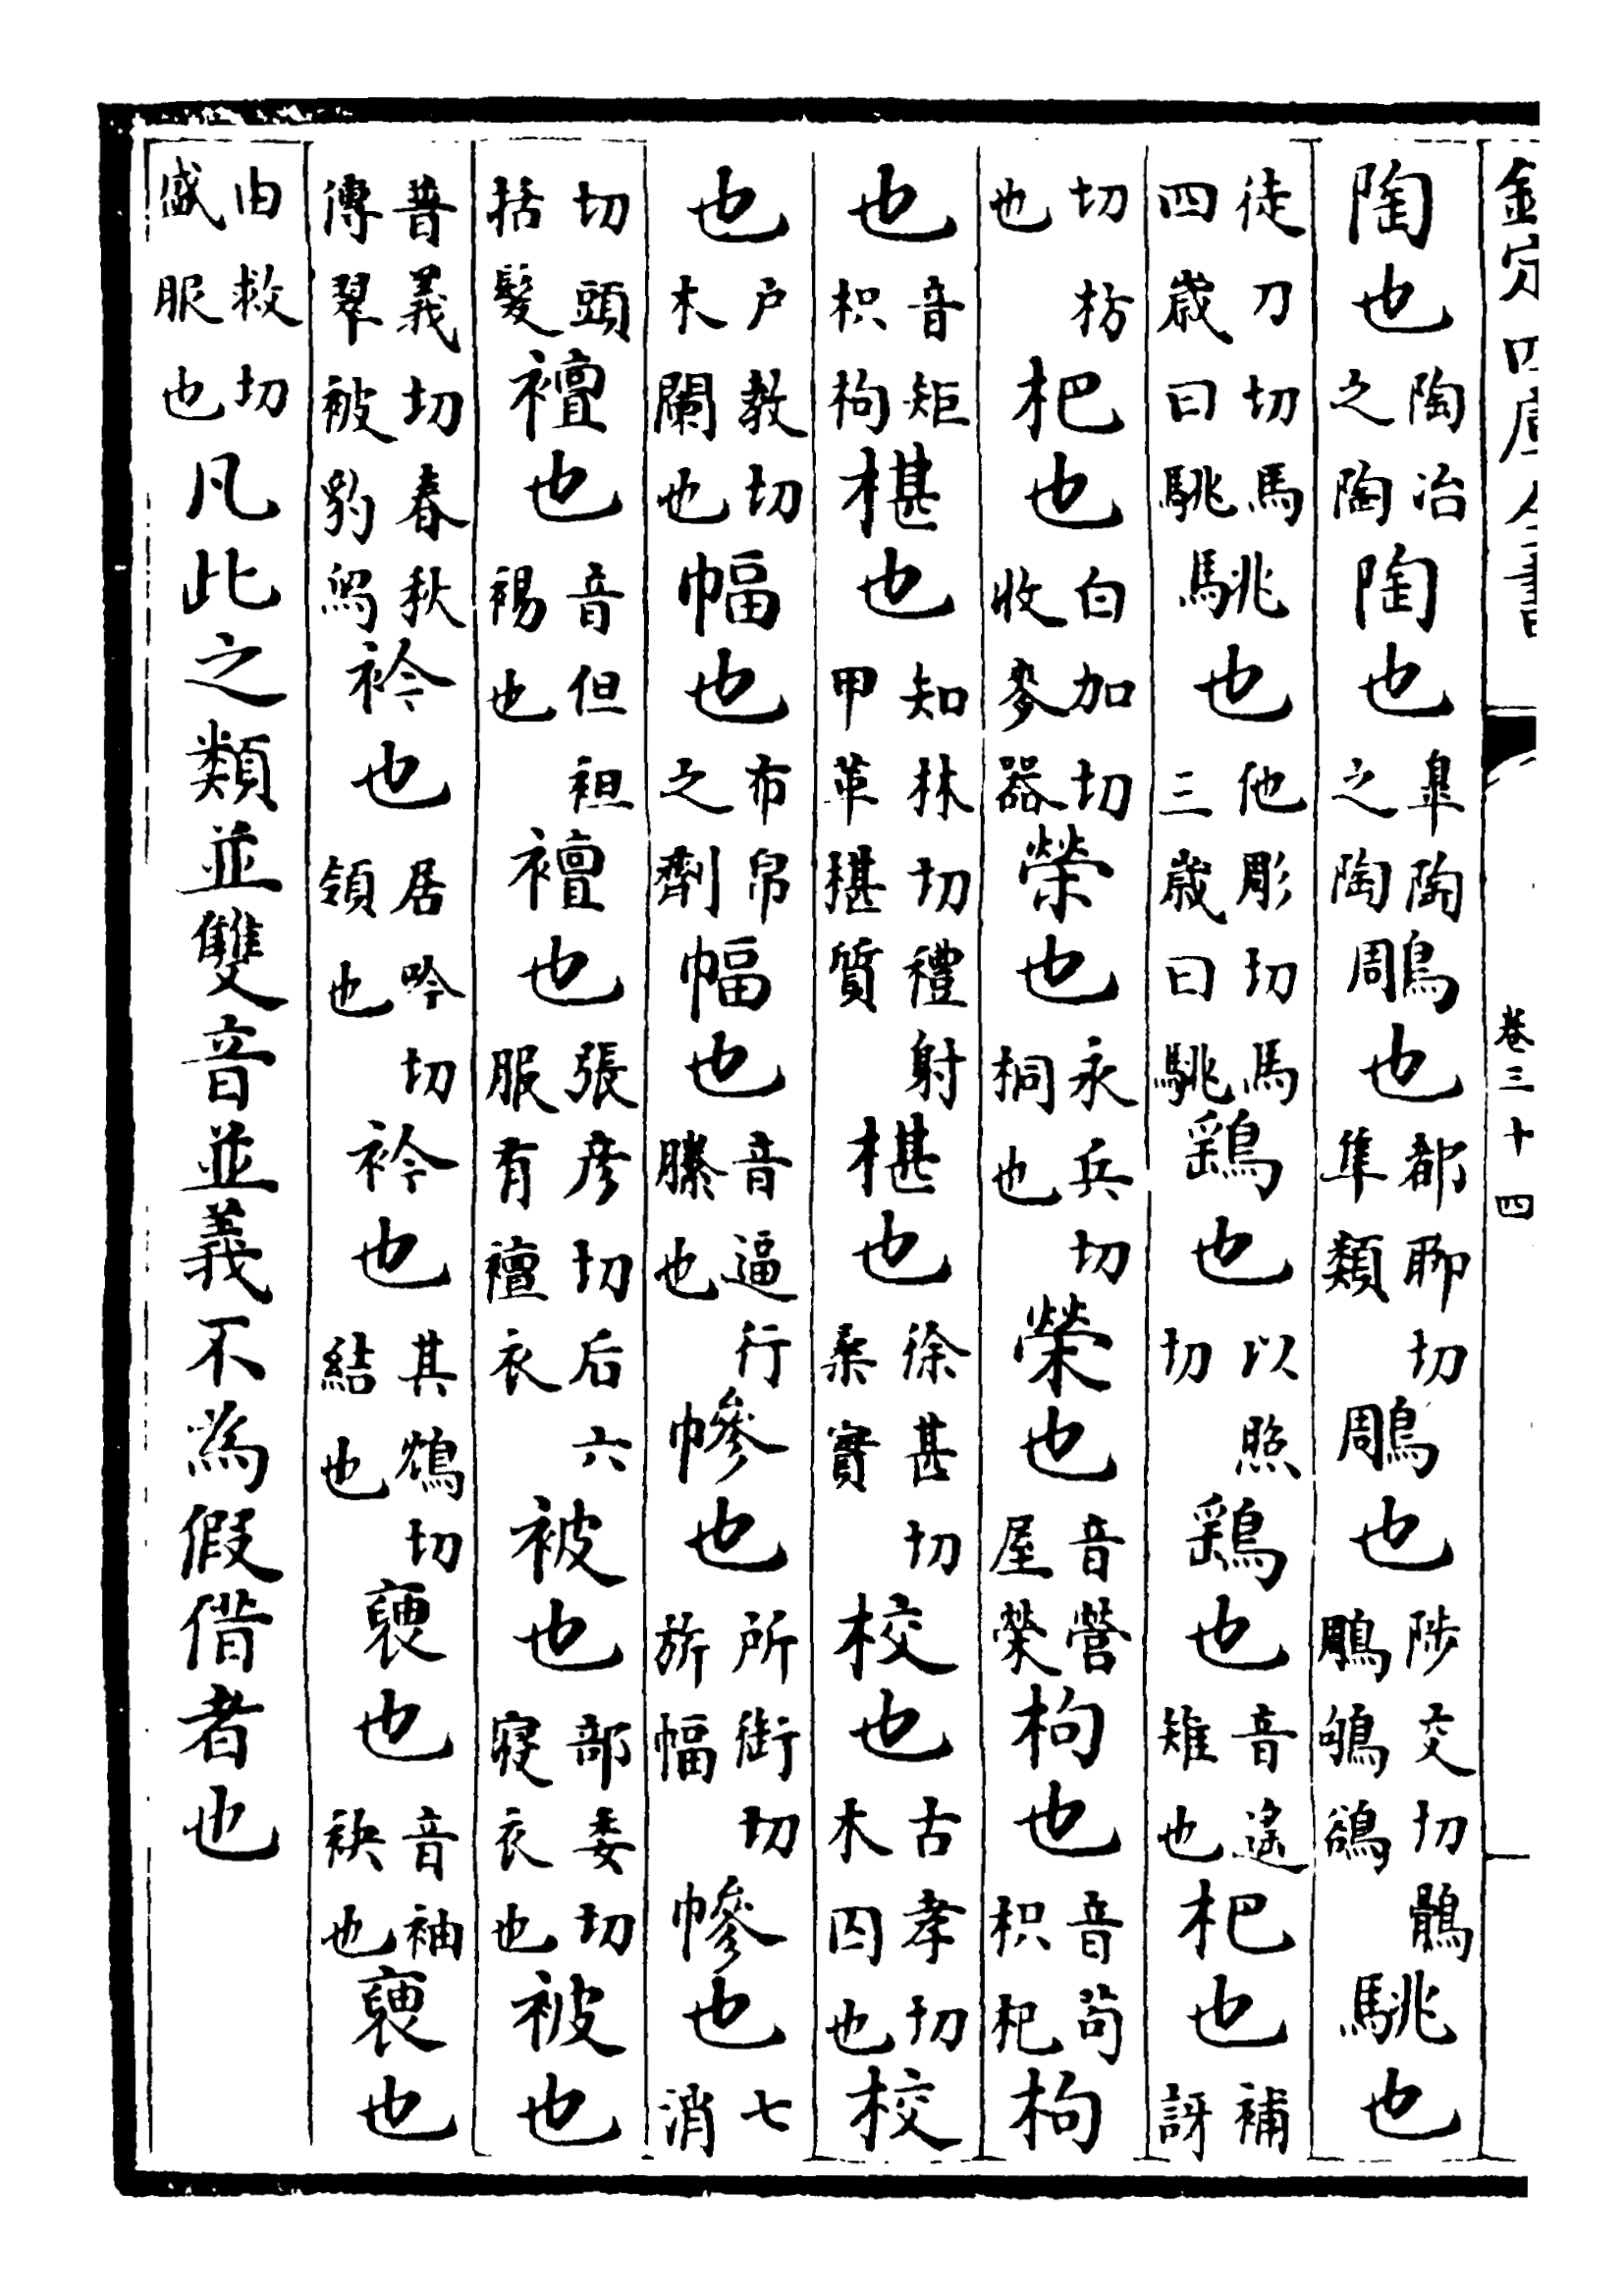 欽定四庫全書　卷三十四
陶也陶冶之陶陶也皐陶之陶鵰也都聊切隼類鵰也陟交切鶻鵰鴝鵒駣也
徒刀切馬四歲曰駣駣也他彫切馬三歲曰駣鷂也以照切鷂也音遙雉也杷也補訝
切枋也杷也白加切收麥器榮也永兵切桐也榮也音營屋榮枸也音苟枳杞枸
也音矩枳枸椹也知林切禮射甲革椹質椹也徐甚切桑實校也古孝切木囚也校
也户教切木闌也幅也布帛之劑幅也音逼行縢也幓也所銜切旂幅幓也七消
切頭括髮襢也音但袒裼也襢也張彥切后六服有襢衣被也部委切寢衣也被也
普義切春秋傳翠被豹舄衿也居吟切領也衿也其鴆切結也褎也音袖袂也褎也
由救切盛服也凡此之類並雙音並義不為假借者也